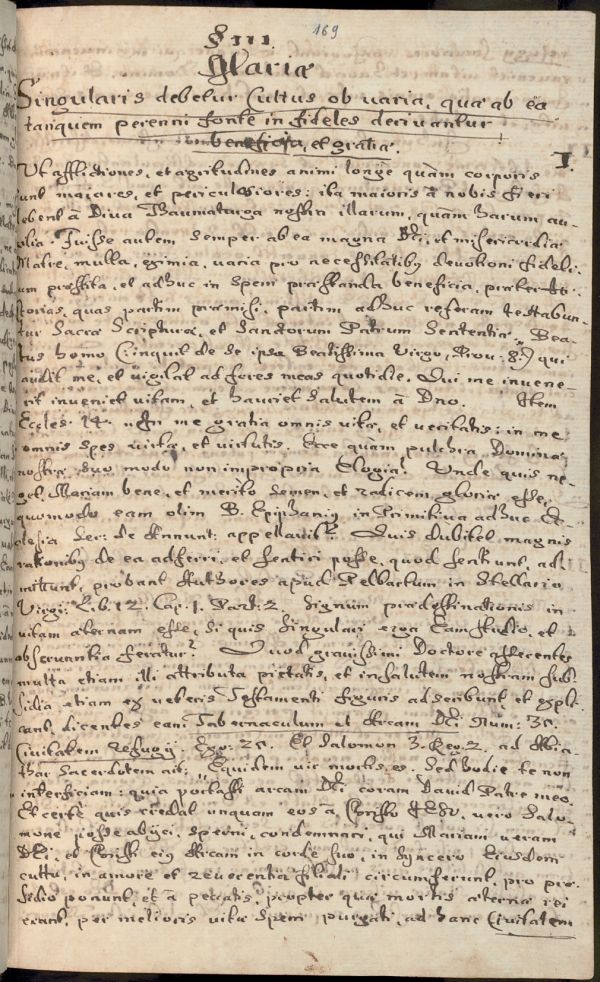 169
§ III.
Mariæ
Singularis debetur Cultus ob varia, quæ ab ea
tanquam perenni fonte in fideles derivantur
beneficia, et gratiæ.
I.
Ut afflictiones, et ægritudines animi longè quàm corporis
sunt maiores, et periculosiores: ita maioris â nobis fieri
debent â Diva Thaumaturga nostra illarum, quàm harum au-
xilia. Fuisse autem semper ab ea magna Dei, et misericordiæ
Matre, multa, eximia, varia pro necessitatibus devotioni fideli-
um præstita, et adhuc in spem præstanda beneficia, præter hi-
storias, quas partim præmisi, partim adhuc referam testabun-
tur Sacræ Scripturæ, et Sanctorum Patrum Sententiæ. Bea-
tus homo (inquit de se ipsa Beatissima Virgo, Prov: 8.) qui
audit me, et vigilat ad fores meas quotidie. Qui me invene-
rit inveniet vitam, et hauriet salutem â Dno. Item
Eccles: 24. In me gratia omnis vitæ, et veritatis: in me
omnis spes vitæ, et virtutis. Ecce quàm pulchra Dominæ
nostræ suo modo non impropria Elogia! Unde quis ne-
get, Mariam bene, et meritò semen, et radicem gloriæ esse,
quomodo eam olim B. Epiphanius in Primitiva adhuc Ec-
clesia Ser: de Annunt: appellavit? Quis dubitet magnis
rationibus de ea adferri, et sentiri posse, quod sentiunt, ad-
mittunt, probant Authores apud Pelbartum in Stellario
Virgi: Lib. 12. Cap. 1. Part: 2. Signum prædestinationis in
vitam æternam esse, si quis singulari erga Eam studio, et
observantia feratur? Quod gravissimi Doctores asserentes
multa etiam illi attributa pietatis, et in salutem nostram sub-
sidia etiam ex veteris Testamenti figuris adscribunt et expli-
cant, dicentes eam Tabernaculum et Arcam Dei Num: 35.
Civitatem refugij. Exo: 25. Et Salomon 3. Reg. 2. ad Abia-
thar Sacerdotem ait: "Equidem vir mortis es. Sed hodie te non
interficiam: quia portasti arcam Dei coram David Patre meo.
Et certè quis credat unquam eos â Christo IESU, vero Salo-
mone posse abijci, sperni, condemnari, qui Mariam veram
Dei, et Christi eius Arcam in corde suo, in syncero Eiusdem
cultu, in amore et reverentia filiali circumferunt, pro præ-
sidio ponunt, et â peccatis, propter quæ mortis æternæ rei
erant, per melioris vitæ spem purgati, ad hanc Civitatem